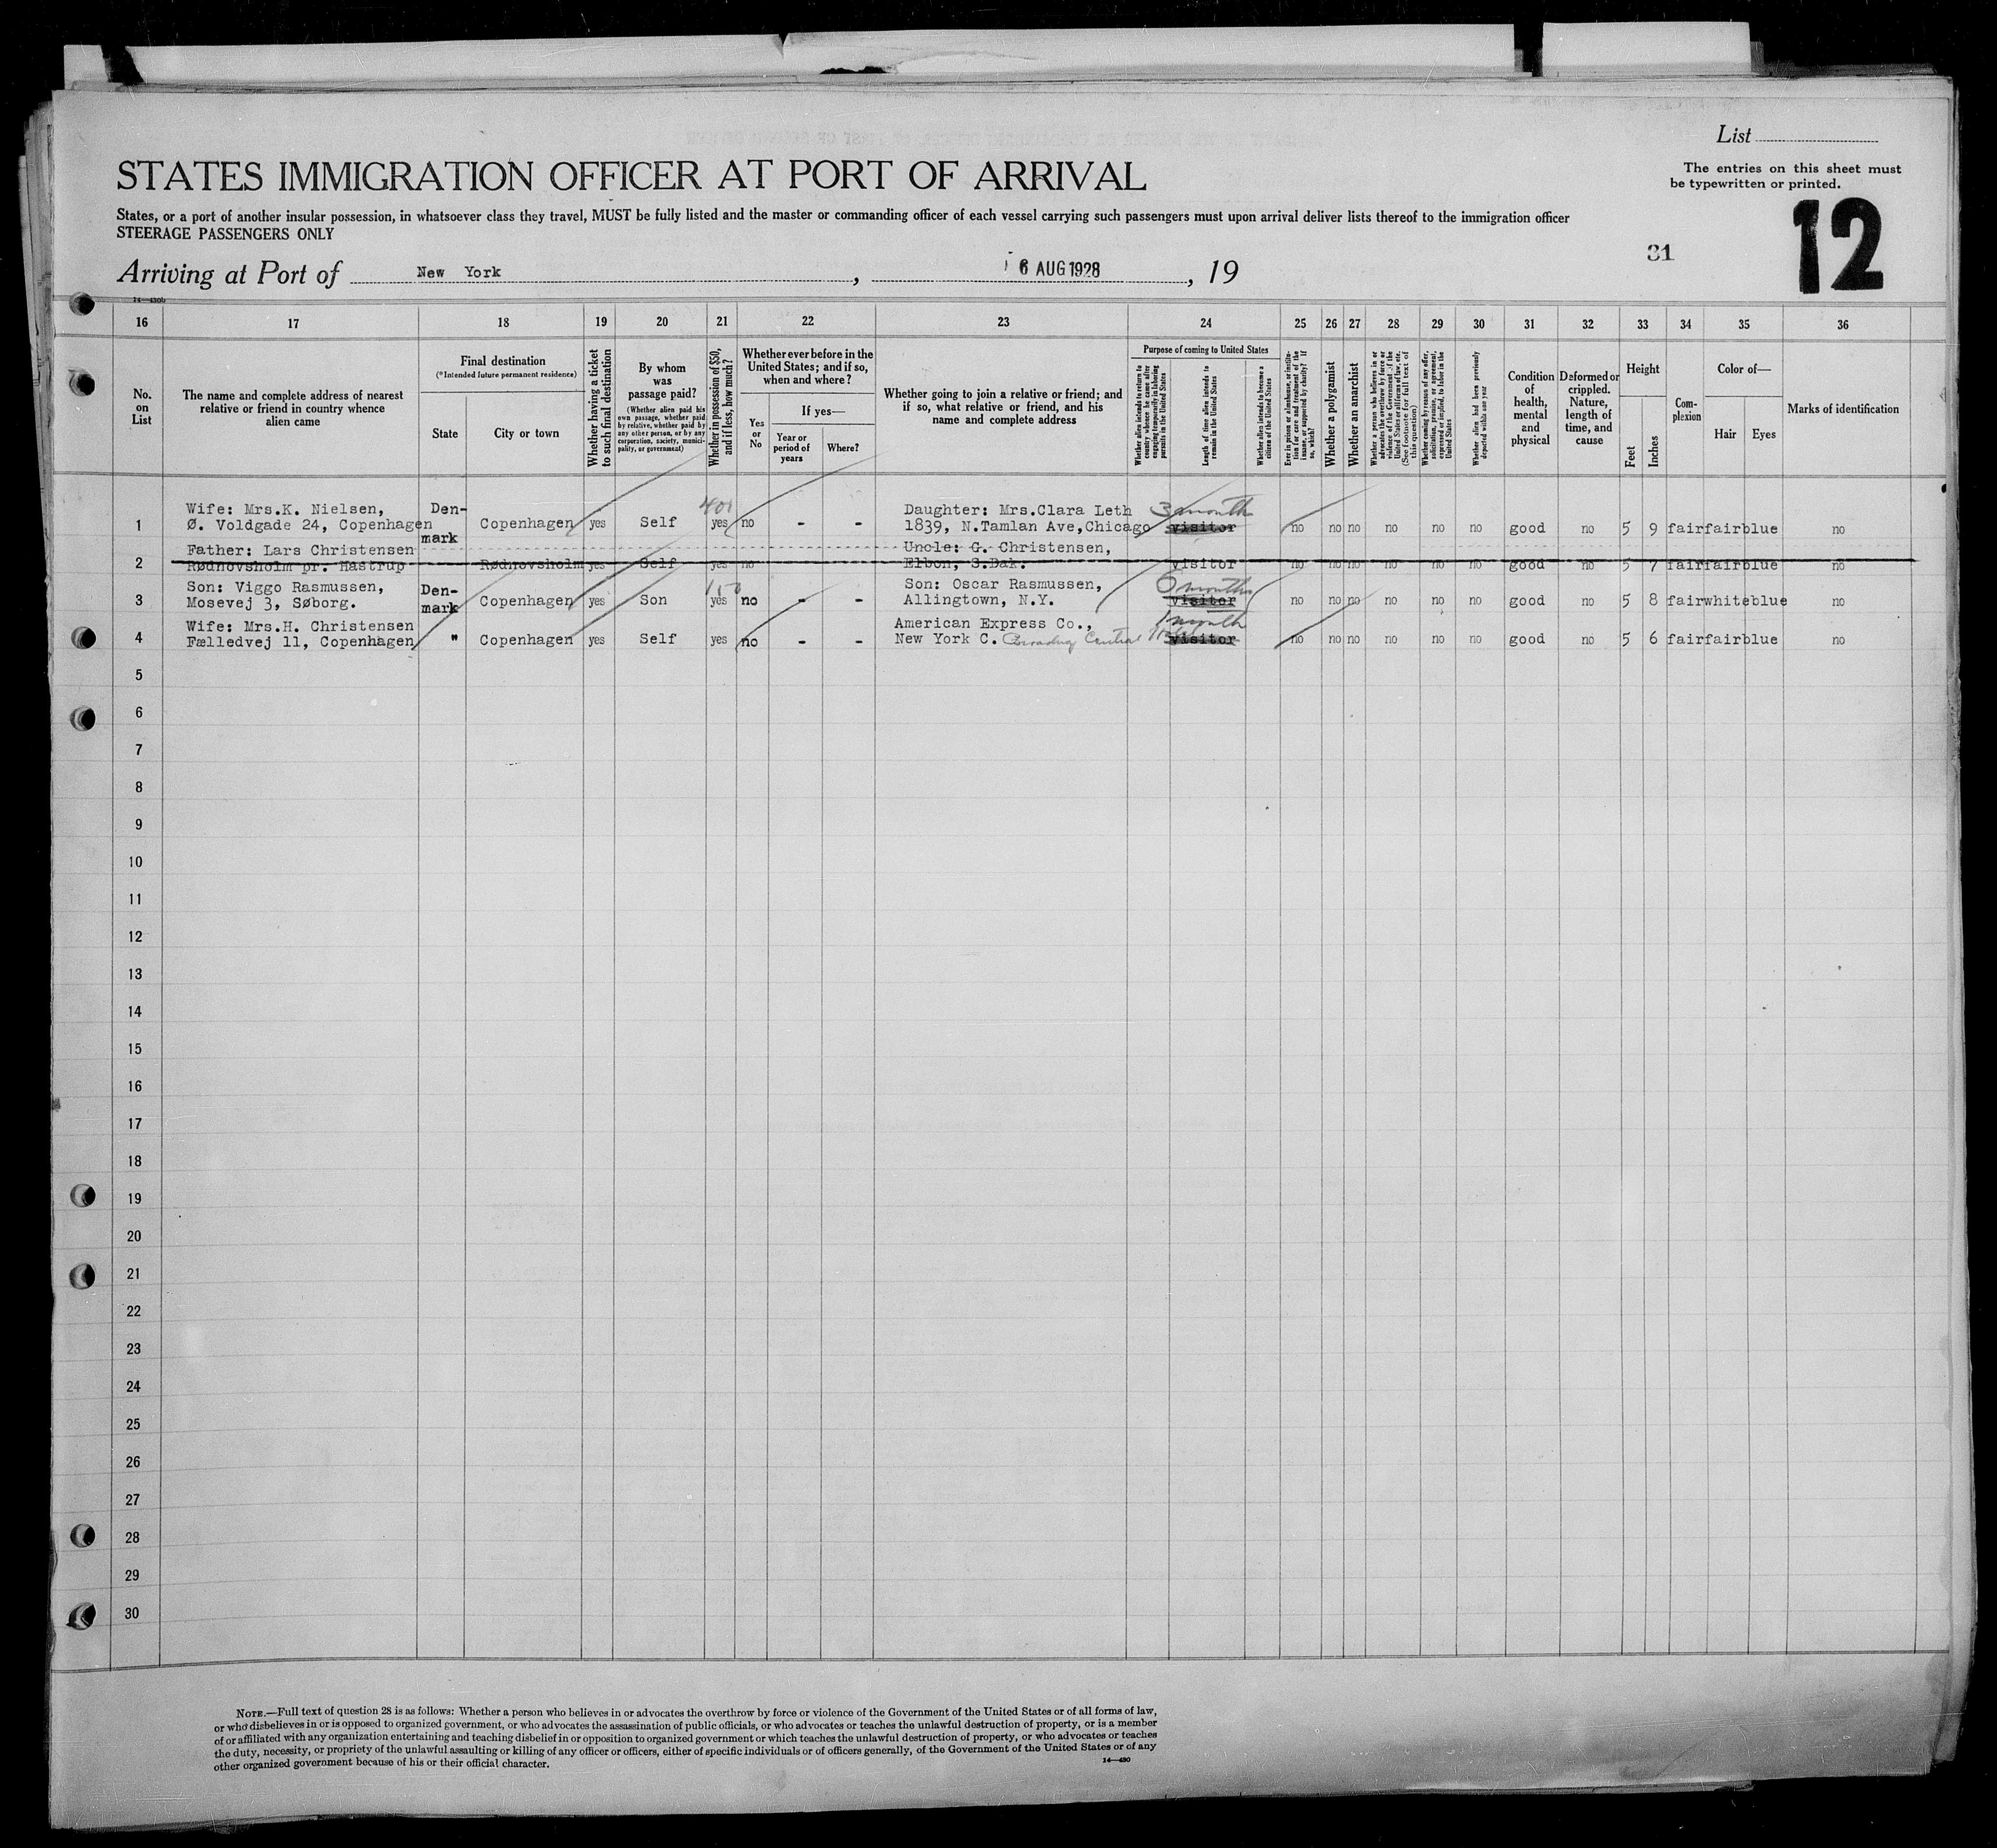 List
The entries on this sheet must
be typewritten or printed.
STATES IMMIGRATION OFFICER AT PORT OF ARRIVAL
States, or a port of another insular possession, in whatsoever class they travel, MUST be fully listed and the master or commanding officer of each vessel carrying such passengers must upon arrival deliver lists thereof to the immigration officer
STEERAGE PASSENGERS ONLY
12
31
Arriving at Port of New York, 6 AUG 1928, 19
14—430b
16 17 18 19 20 21 22 23 24 25 26 27 28 29 30 31 32 33 34 35 36
No. on List
The name and complete address of nearest relative or friend in country whence alien came
Final destination
(*Intended future permanent residence)
State
City or town
Whether having a ticket to such final destination
By whom was passage paid?
(Whether alien paid his own passage, whether paid by relative, whether paid by any other person, or by any corporation, society, municipality, or government)
Whether in possession of $50, and if less, how much?
Whether ever before in the United States; and if so, when and where?
Yes or No
If yes—
Year or period of years
Where?
Whether going to join a relative or friend; and if so, what relative or friend, and his name and complete address
Purpose of coming to United States
Whether alien intends to return to country whence he came after engaging temporarily in laboring pursuits in the United States
Length of time alien intends to remain in the United States
Whether alien intends to become a citizen of the United States
Ever in prison or almshouse, or institution for care and treatment of the insane, or supported by charity? If so, which?
Whether a polygamist
Whether an anarchist
Whether a person who believes in or advocates the overthrow by force or violence of the Government of the United States or all forms of law, etc. (See footnote for full text of this question)
Whether coming by reason of any offer, solicitation, promise, or agreement, expressed or implied, to labor in the United States
Whether alien had been previously deported within one year
Condition of health, mental and physical
Deformed or crippled. Nature, length of time, and cause
Height
Feet
Inches
Complexion
Color of—
Hair Eyes
Marks of identification
Wife: Mrs.K. Nielsen, Den- 400 Daughter: Mrs.Clara Leth 3 month
1 Ø. Voldgade 24, Copenhagen mark Copenhagen yes Self yes no - - 1839, N.Tamlan Ave,Chicago visitor no no no no no no good no 5 9 fair fair blue no
Father: Lars Christensen Uncle: G. Christensen,
2 Rødhovsholm pr. Hastrup Rødhovsholm yes Self yes no Elbon, S.Dak. visitor no no no no no no good no 5 7 fair fair blue no
Son: Viggo Rasmussen, Den- 150 Son: Oscar Rasmussen, 6 months
3 Mosevej 3, Søborg. mark Copenhagen yes Son yes no - - Allingtown, N.Y. visitor no no no no no no good no 5 8 fair white blue no
Wife: Mrs.H. Christensen American Express Co., 1 month
4 Fælledvej 11, Copenhagen " Copenhagen yes Self yes no - - New York C. Broadway Central visitor no no no no no no good no 5 6 fair fair blue no
5
6
7
8
9
10
11
12
13
14
15
16
17
18
19
20
21
22
23
24
25
26
27
28
29
30
NOTE.—Full text of question 28 is as follows: Whether a person who believes in or advocates the overthrow by force or violence of the Government of the United States or of all forms of law,
or who disbelieves in or is opposed to organized government, or who advocates the assassination of public officials, or who advocates or teaches the unlawful destruction of property, or is a member
of or affiliated with any organization entertaining and teaching disbelief in or opposition to organized government or which teaches the unlawful destruction of property, or who advocates or teaches
the duty, necessity, or propriety of the unlawful assaulting or killing of any officer or officers, either of specific individuals or of officers generally, of the Government of the United States or of any
other organized government because of his or their official character.
14—430